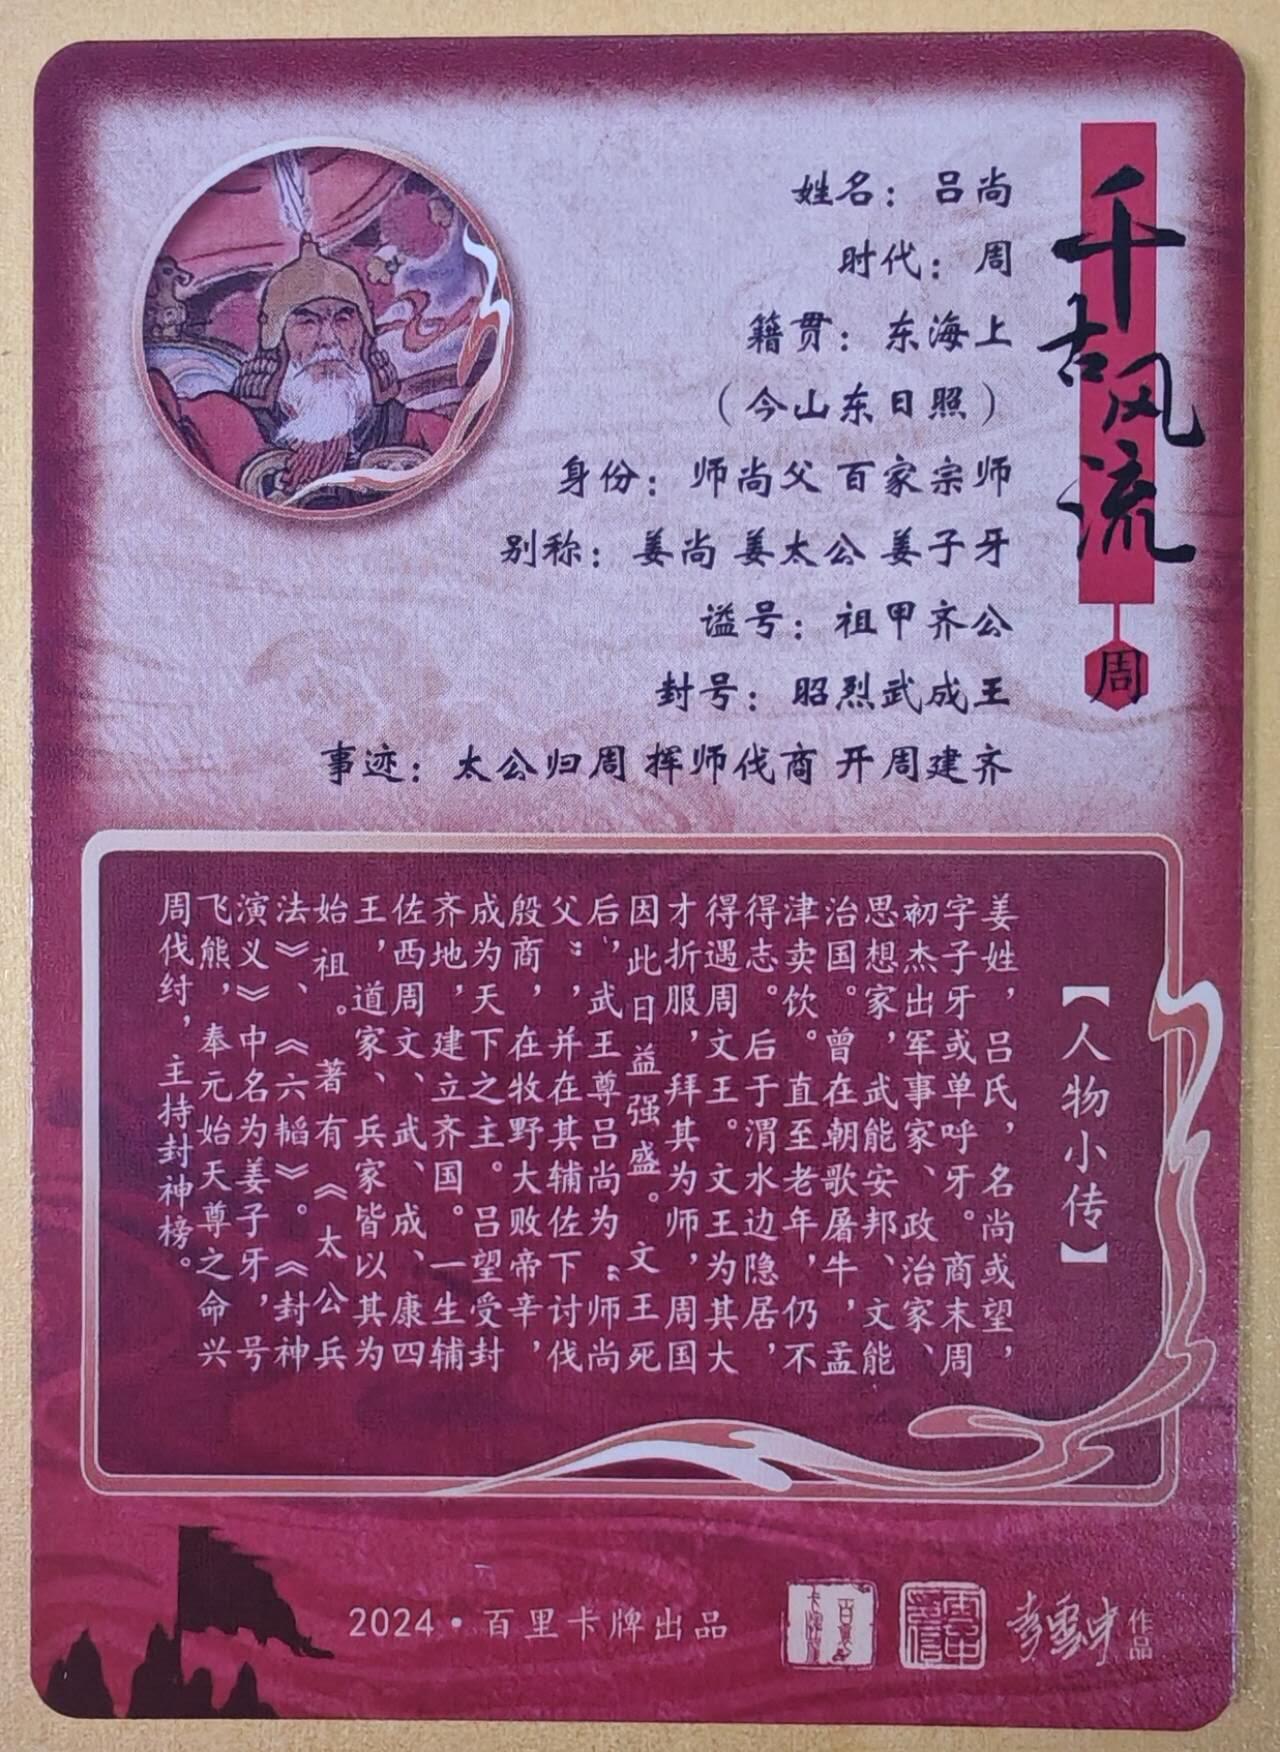 千古风流
周
姓名：吕尚
时代：周
籍贯：东海上
（今山东日照）
身份：师尚父 百家宗师
别称：姜尚 姜太公 姜子牙
谥号：祖甲齐公
封号：昭烈武成王
事迹：太公归周 挥师伐商 开周建齐
【人物小传】
姜姓，吕氏，名尚或望，
字子牙或单呼牙。商末周
初杰出军事家、政治家、
思想家，武能安邦、文能
治国。曾在朝歌屠牛，孟
津卖饮。直至老年，仍不
得志。后于渭水边隐居，
得遇周文王。文王为其大
才折服，拜其为师，周国
因此日益强盛。文王死
后，武王尊吕尚为“师尚
父”，并在其辅佐下讨伐
殷商，在牧野大败帝辛，
成为天下之主。吕望受封
齐地，建立齐国。一生辅
佐西周文、武、成、康四
王，道家、兵家皆以其为
始祖。著有《太公兵
法》、《六韬》。《封神
演义》中名为姜子牙，号
飞熊，奉元始天尊之命兴
周伐纣，主持封神榜。
2024·百里卡牌出品
李云中
作品